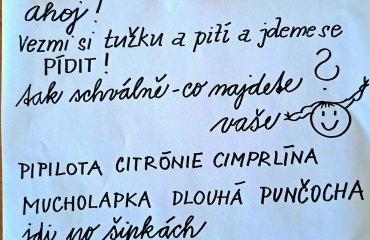 ahoj!
Vezmi si tužku a pití a jdeme se
PÍDIT!
tak schválně - co najdete?
vaše
PIPILOTA CITRÓNIE CIMPRLÍNA
MUCHOLAPKA DLOUHÁ PUNČOCHA
jdi po šipkách